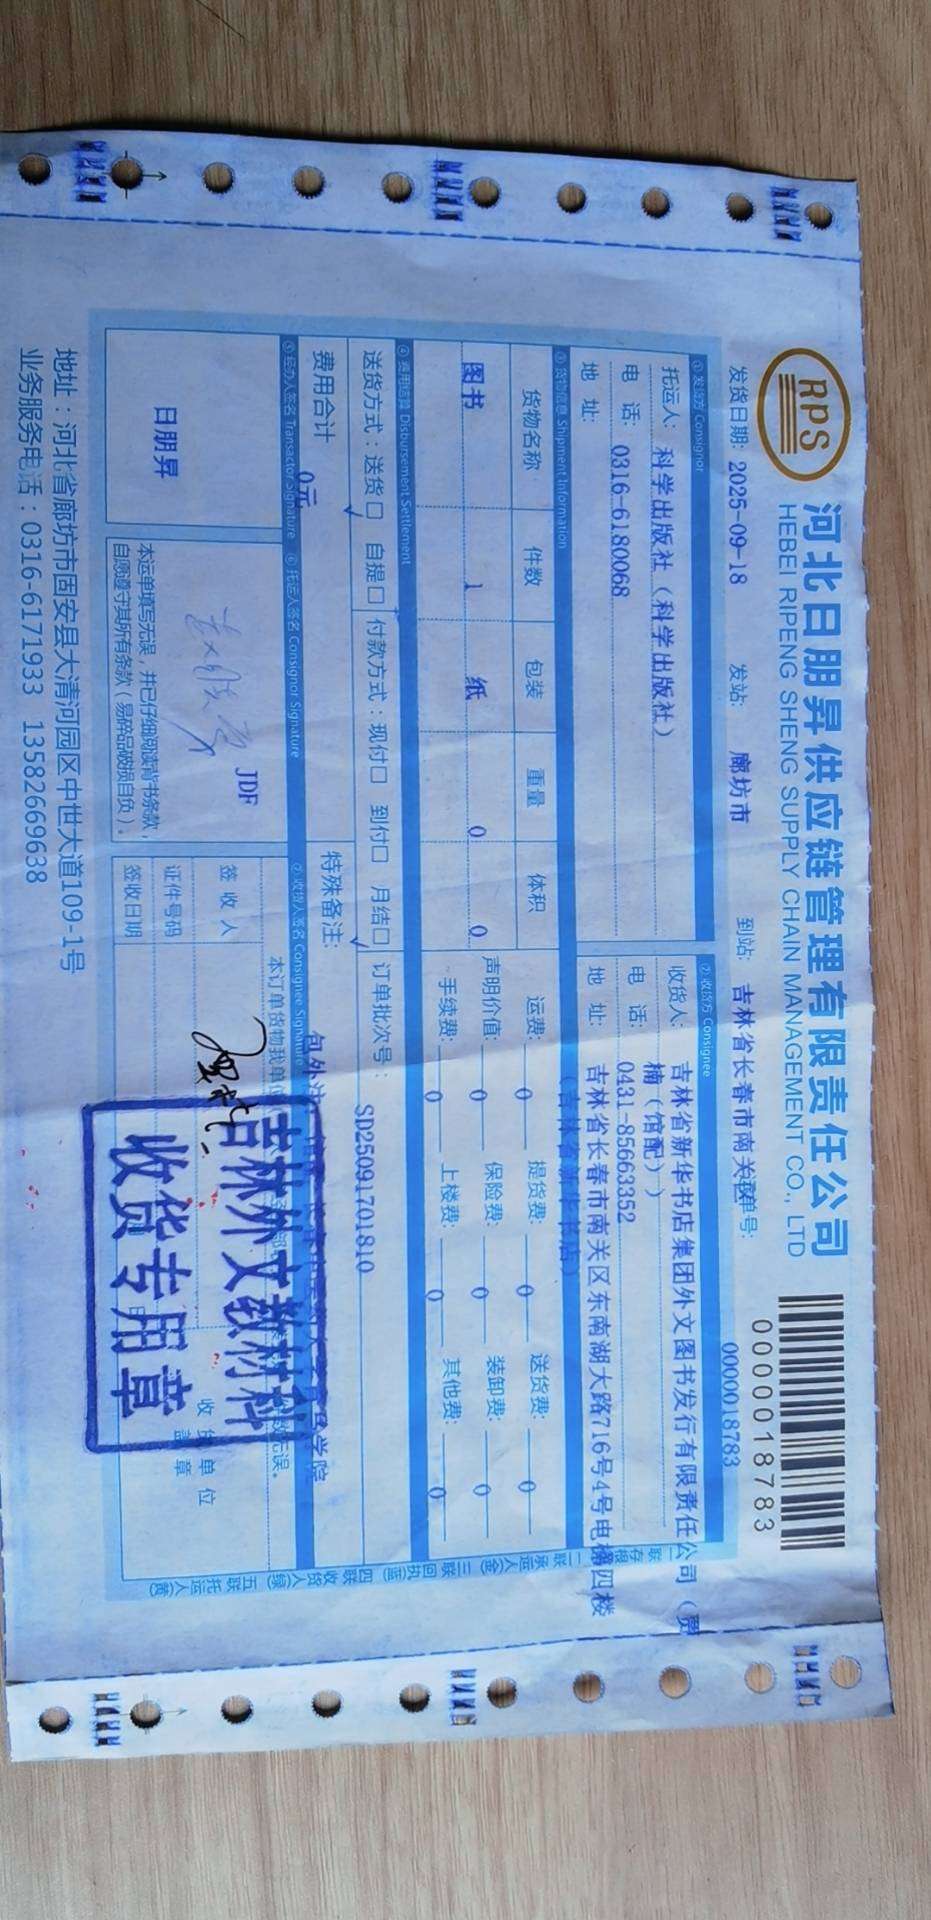 RPS
河北日朋昇供应链管理有限责任公司
HEBEI RIPENG SHENG SUPPLY CHAIN MANAGEMENT CO., LTD
0000018783
发货日期: 2025-09-18 发站: 廊坊市 到站: 吉林省长春市南关区 单号: 0000018783
① 发货方 Consignor
托运人: 科学出版社（科学出版社）
电 话: 0316-6180068
地 址:
② 收货方 Consignee
收货人: 吉林省新华书店集团外文图书发行有限责任公司（贾
楠（馆配））
电 话: 0431-85663352
地 址: 吉林省长春市南关区东南湖大路716号4号电梯四楼
（吉林省新华书店）
③ 货物信息 Shipment Information
货物名称 件数 包装 重量 体积
图书 1 纸 0 0
运费: 0 提货费: 0 送货费: 0
声明价值: 0 保险费: 0 装卸费: 0
手续费: 0 上楼费: 0 其他费: 0
④ 费用结算 Disbursement Settlement
送货方式：送货□ 自提□ 付款方式：现付□ 到付□ 月结□ 订单批次号： SD25091701810
费用合计 0元
特殊备注:
包外注
学院
⑤ 经办人签名 Transactor Signature
日朋昇
⑥ 托运人签名 Consignor Signature
JDF
本运单填写无误，并已仔细阅读背书条款，
自愿遵守其所有条款（易碎品破损自负）。
⑦ 收货人签名 Consignee Signature
本订单货物我单位
无误。
签 收 人
证件号码
签收日期
收货单位
盖章
吉林外文教材科
收货专用章
一联存根 二联承运人(金) 三联回执(蓝) 四联收货人(绿) 五联托运人(黄)
地址：河北省廊坊市固安县大清河园区中世大道109-1号
业务服务电话：0316-6171933 13582669638